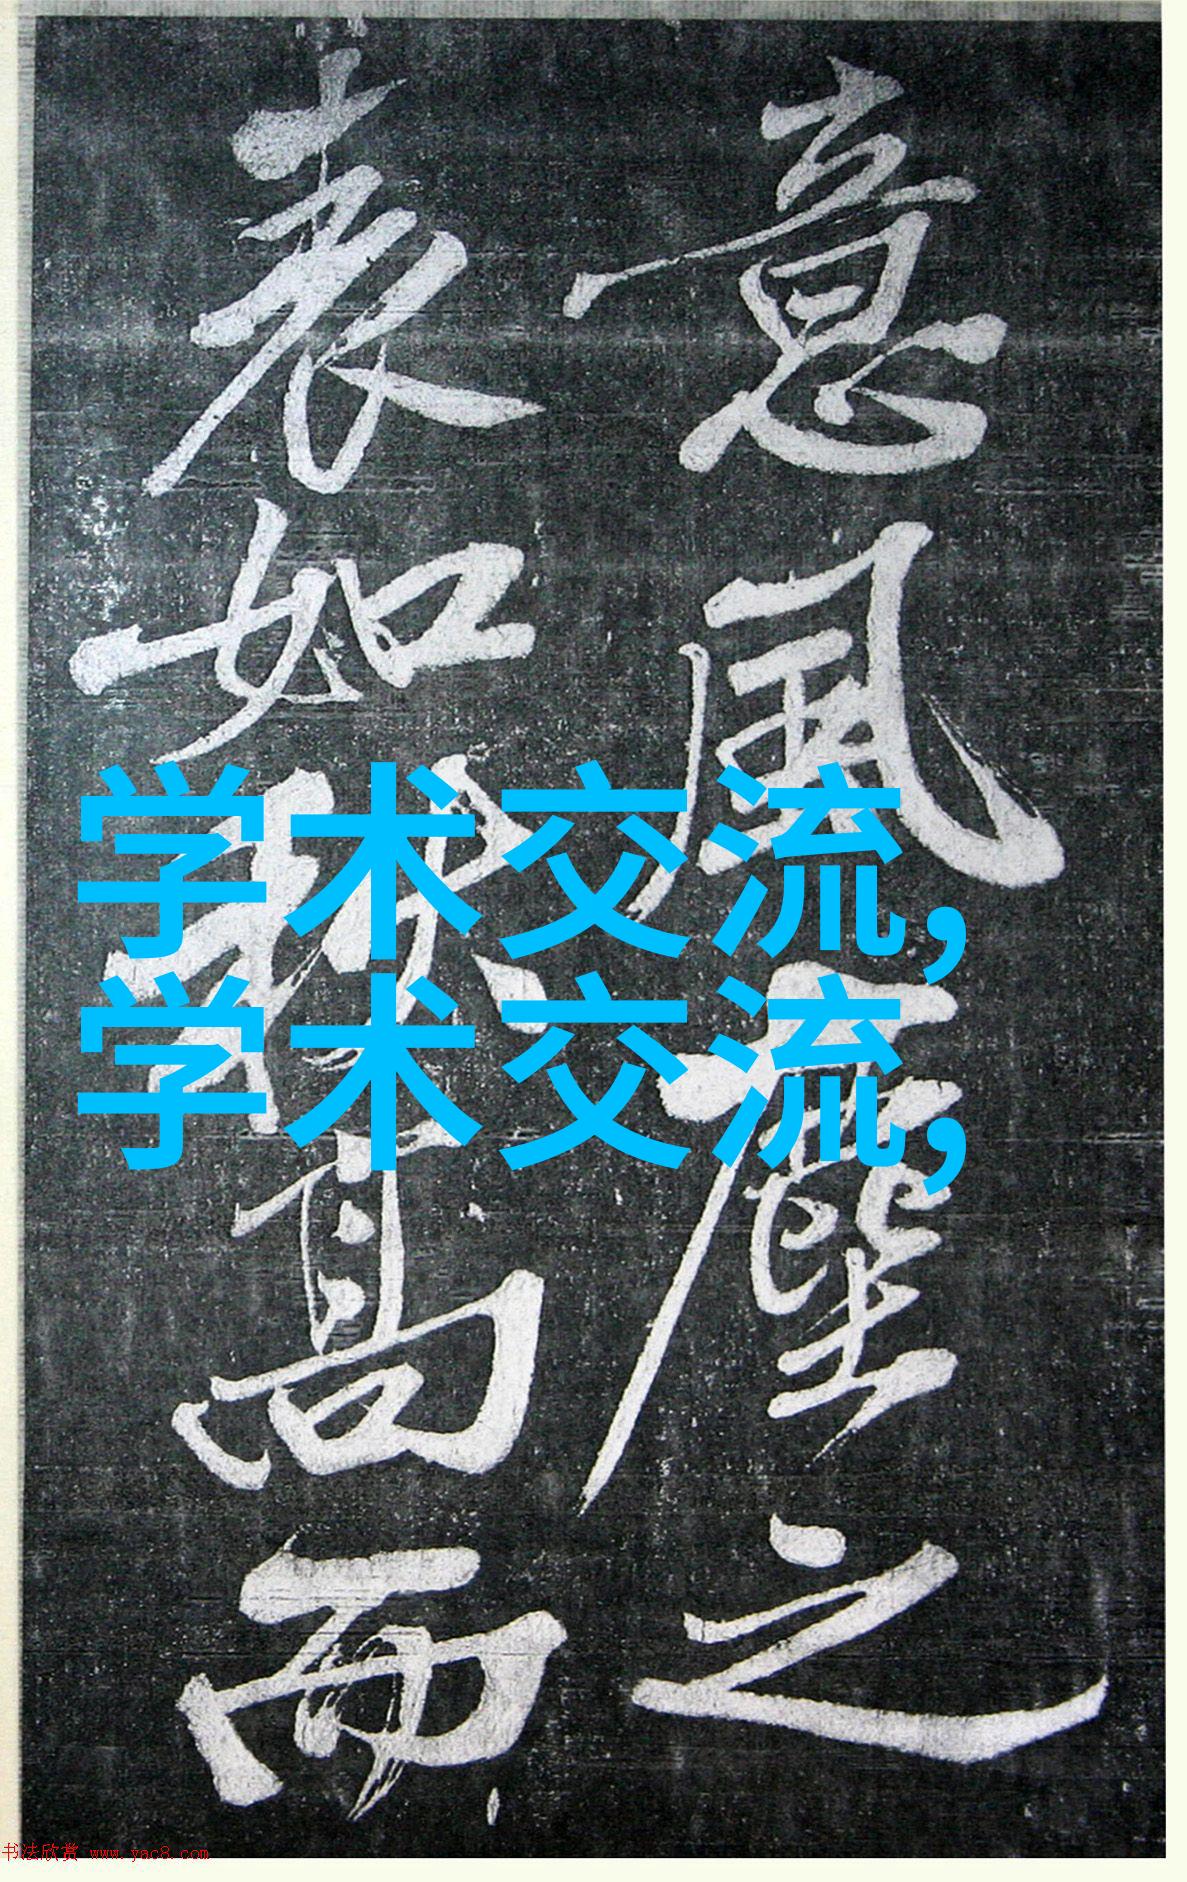 意風塵之
表如高而
学术交流,
学术交流,
书法欣赏 www.yac8.com